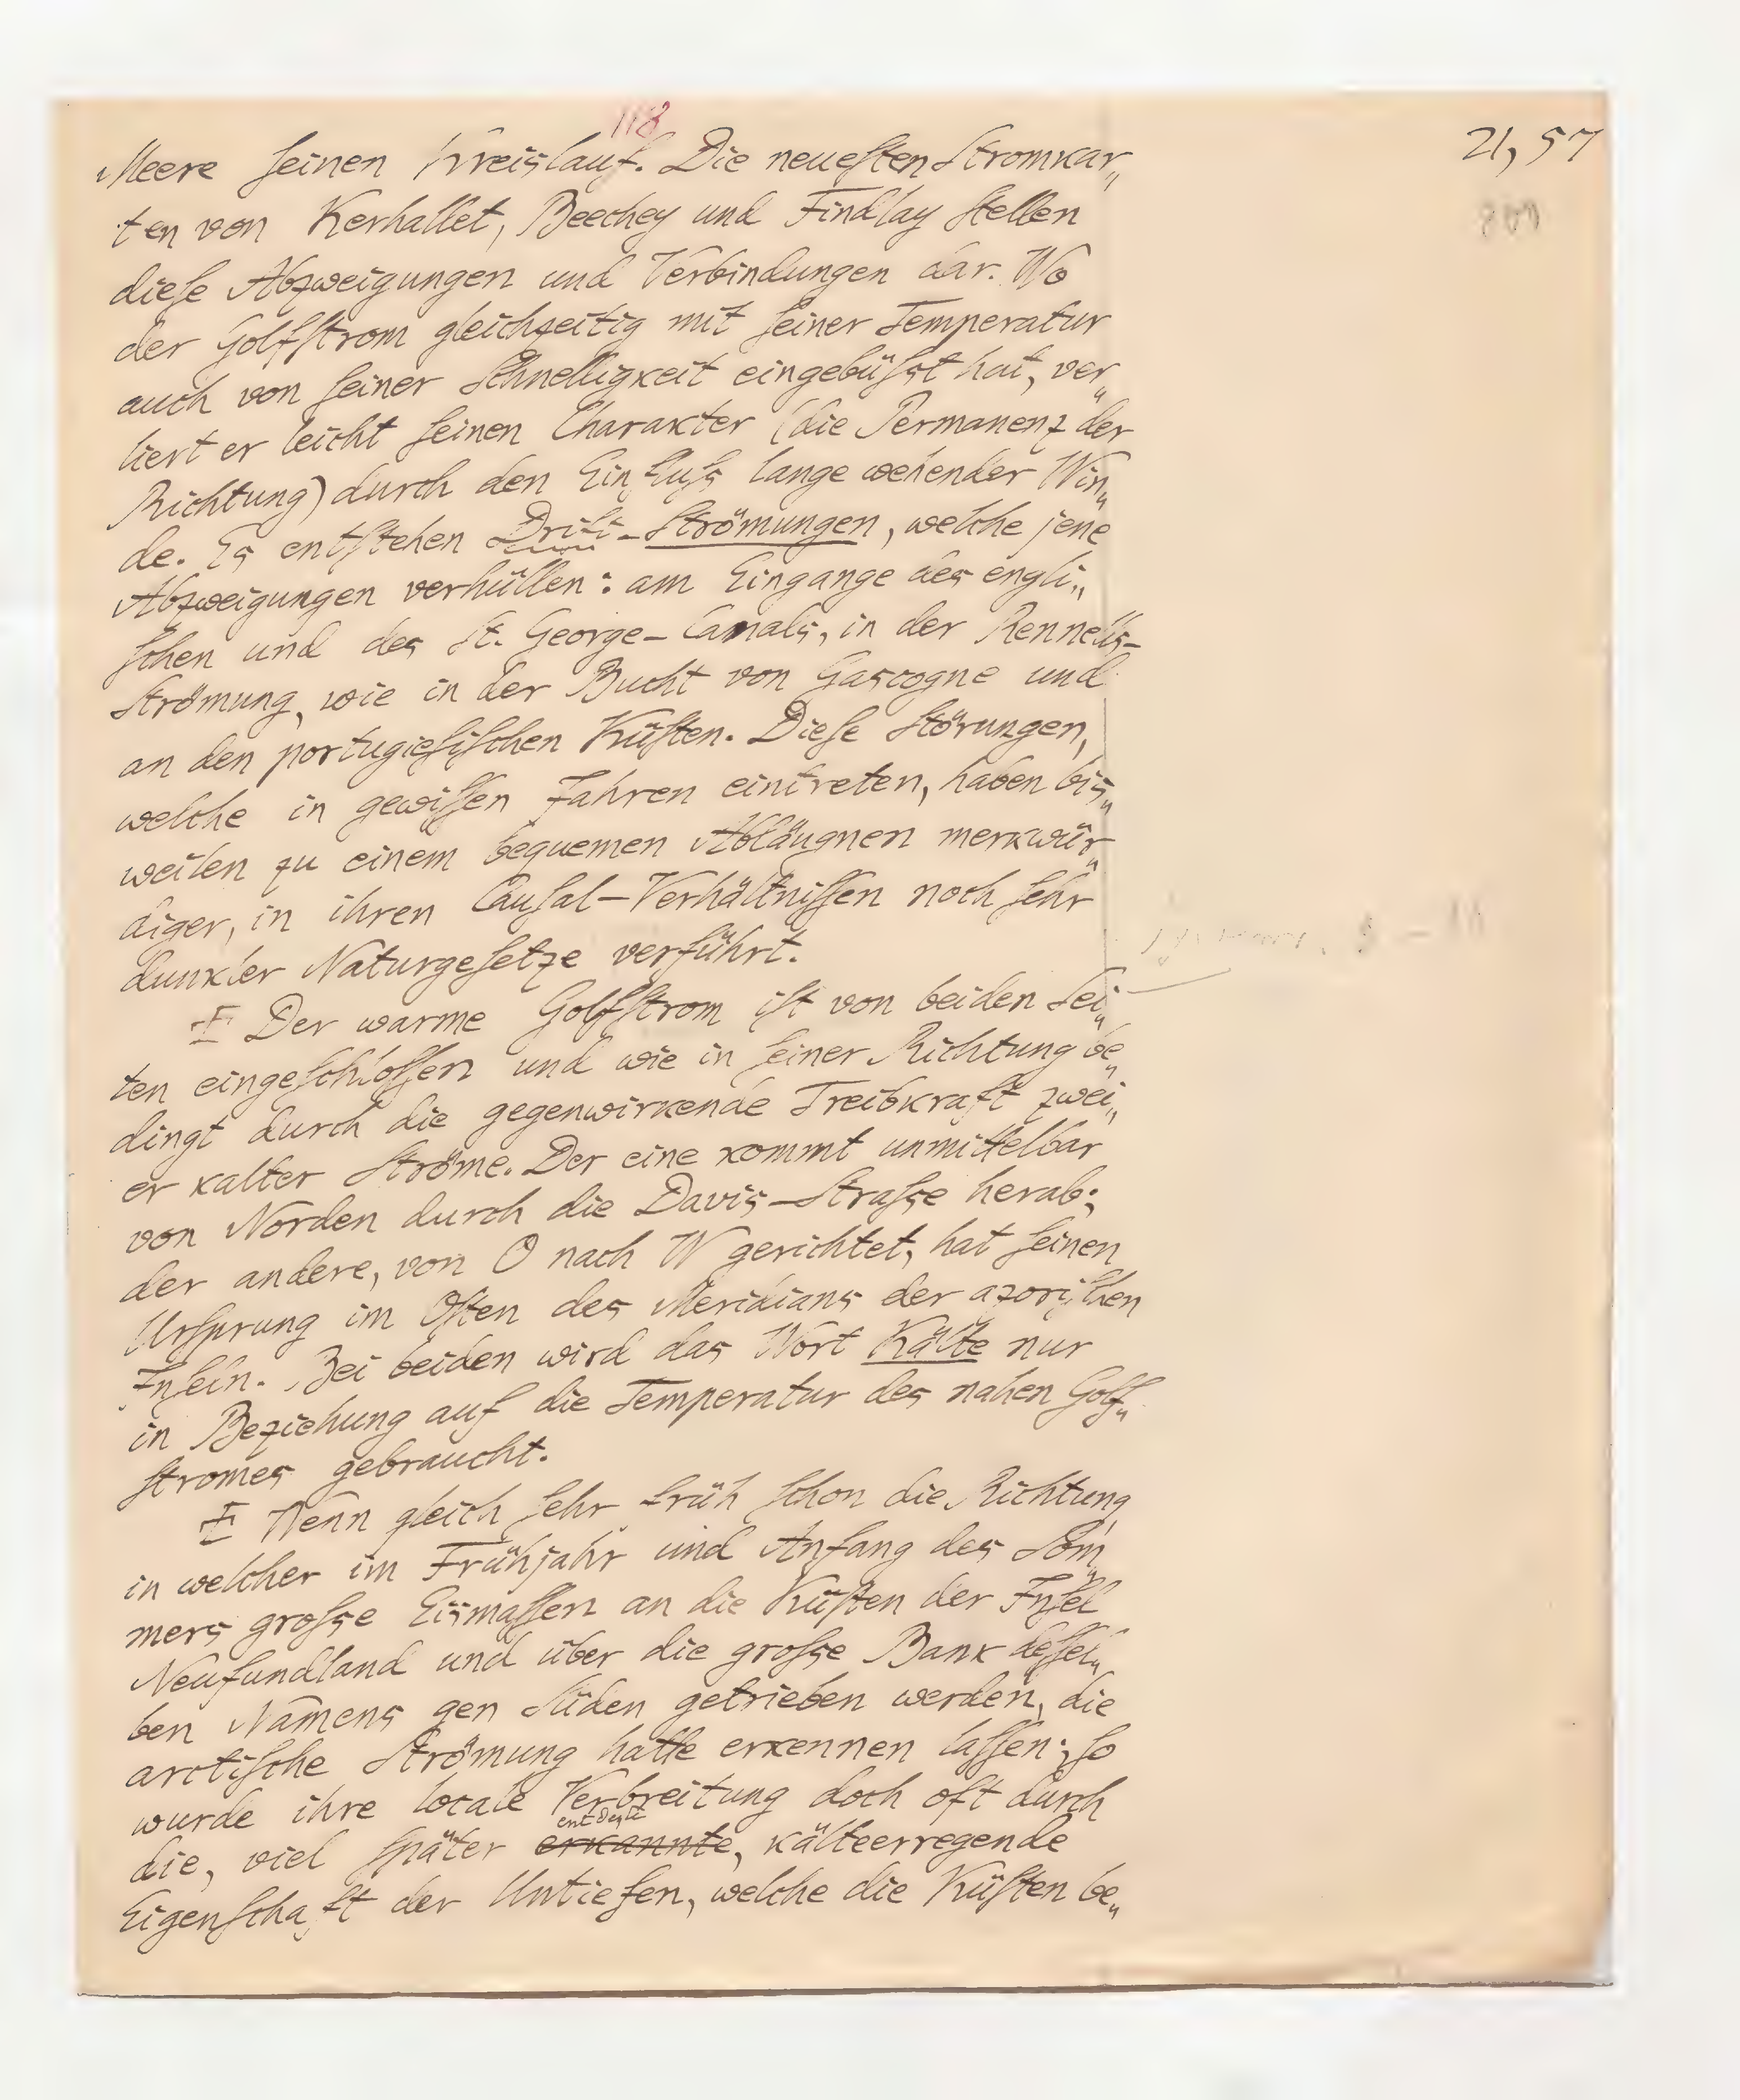 118
21, 57
Meere ſeinen Kreislauf. Die neueſten Stromkar„
ten von Kerhallet, Beechey und Findlay ſtellen
dieſe Abzweigungen und Verbindungen dar. Wo
der Golfſtrom gleichzeitig mit ſeiner Temperatur
auch von ſeiner Schnelligkeit eingebüſst hat, ver„
liert er leicht ſeinen Charakter (die Permanenz der
Richtung) durch den Einfluſs lange wehender Win„
de. Es entſtehen Drift-Strömungen, welche jene
Abzweigungen verhüllen: am Eingange des engli„
ſchen und des St. George-Canals, in der Rennells-
Strömung, wie in der Bucht von Gascogne und
an den portugieſiſchen Küſten. Dieſe Störungen,
welche in gewiſſen Jahren eintreten, haben bis„
weilen zu einem bequemen Abläugnen merkwür„
diger, in ihren Cauſal-Verhältniſſen noch ſehr
dunkler Naturgeſetze verführt.
Der warme Golfſtrom iſt von beiden Sei„
ten eingeſchloſſen und wie in ſeiner Richtung be„
dingt durch die gegenwirkende Treibkraft zwei„
er kalter Ströme. Der eine kommt unmittelbar
von Norden durch die Davis-Straſse herab;
der andere, von O nach W gerichtet, hat ſeinen
Urſprung im Oſten des Meridians der azoriſchen
Inſeln. Bei beiden wird das Wort Kälte nur
in Beziehung auf die Temperatur des nahen Golf„
ſtromes gebraucht.
Wenn gleich ſehr früh ſchon die Richtung,
in welcher im Frühjahr und Anfang des Som„
mers groſse Eismaſſen an die Küſten der Inſel
Neufundland und über die groſse Bank deſſel„
ben Namens gen Süden getrieben werden, die
arctiſche Strömung hatte erkennen laſſen; ſo
wurde ihre locale Verbreitung doch oft durch
entdeckte
die, viel ſpäter erkannte, kälteerregende
Eigenſchaft der Untiefen, welche die Küſten be„